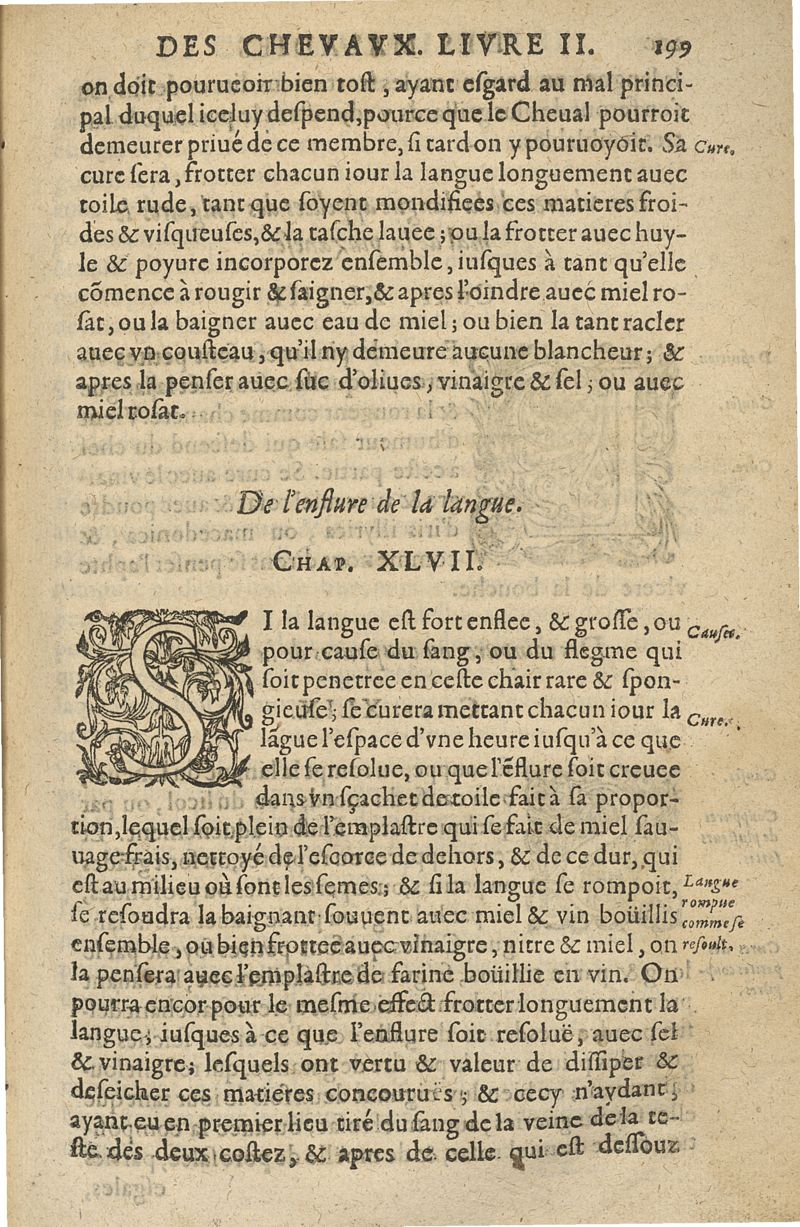 DES CHEVAVX. LIVRE II. 199
on doit pourueoir bien tost, ayant esgard au mal princi-
pal duquel iceluy despend, pource que le Cheual pourroit
demeurer priué de ce membre, si tard on y pouruoyoit. Sa
Cure.
cure sera, frotter chacun iour la langue longuement auec
toile rude, tant que soyent mondifiees ces matieres froi-
des & visqueuses, & la tasche lauee; ou la frotter auec huy-
le & poyure incorporez ensemble, iusques à tant qu'elle
cõmence à rougir & saigner, & apres l'oindre auec miel ro-
sat, ou la baigner auec eau de miel; ou bien la tant racler
auec vn cousteau, qu'il ny demeure aucune blancheur; &
apres la penser auec suc d'oliues, vinaigre & sel; ou auec
miel rosat.
De l'enflure de la langue.
CHAP. XLVII.
SI la langue est fort enflee, & grosse, ou
Causes.
pour cause du sang, ou du flegme qui
soit penetree en ceste chair rare & spon-
gieuse; se curera mettant chacun iour la
Cure.
lãgue l'espace d'vne heure iusqu'à ce que
elle se resolue, ou que l'ẽflure soit creuee
dans vn sçachet de toile fait à sa propor-
tion, lequel soit plein de l'emplastre qui se fait de miel sau-
uage frais, nettoyé de l'escorce de dehors, & de ce dur, qui
est au milieu où sont les semes; & si la langue se rompoit,
Langue
rompue
comme se
resoult.
se resoudra la baignant souuent auec miel & vin boüillis
ensemble, ou bien frottee auec vinaigre, nitre & miel, on
la pensera auec l'emplastre de farine boüillie en vin. On
pourra encor pour le mesme effect frotter longuement la
langue, iusques à ce que l'enflure soit resoluë, auec sel
& vinaigre; lesquels ont vertu & valeur de dissiper &
deseicher ces matieres concouruës; & cecy n'aydant,
ayant eu en premier lieu tiré du sang de la veine de la te-
ste des deux costez, & apres de celle qui est dessouz